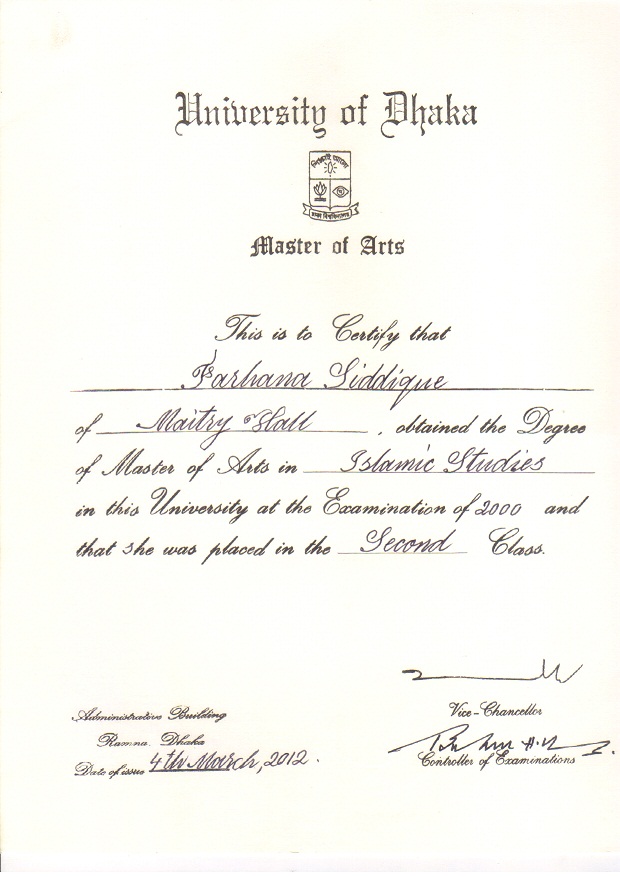 University of Dhaka
শিক্ষাই আলো
ঢাকা বিশ্ববিদ্যালয়
Master of Arts
This is to Certify that
Farhana Siddique
of Maitry Hall, obtained the Degree
of Master of Arts in Islamic Studies
in this University at the Examination of 2000 and
that she was placed in the Second Class.
Vice-Chancellor
Controller of Examinations
Administrative Building
Ramna, Dhaka
Date of issue 4th March, 2012.